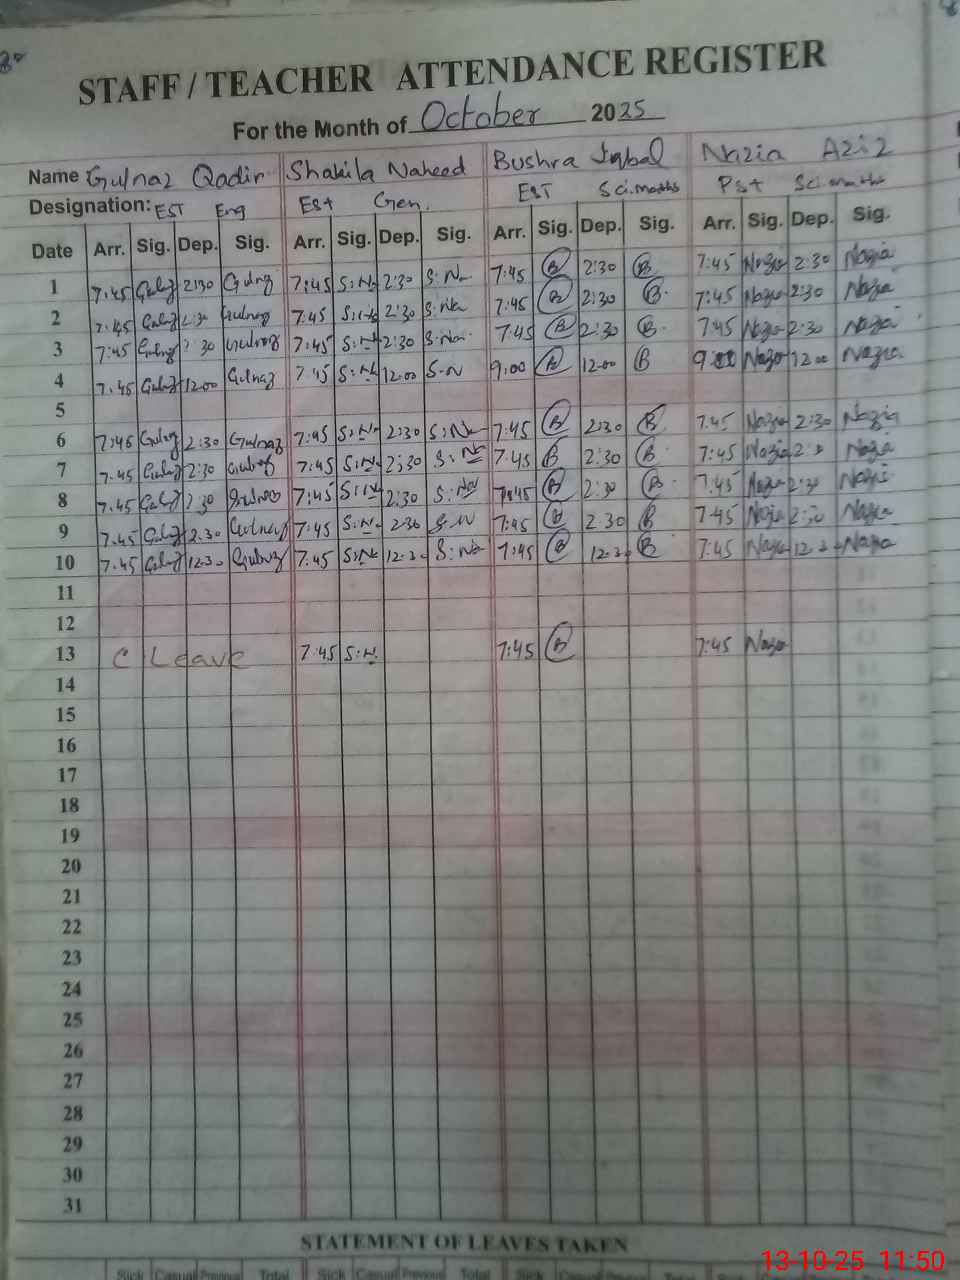 STAFF / TEACHER ATTENDANCE REGISTER
For the Month of October 2025
Name Gulnaz Qadir Shakila Naheed Bushra Iqbal Nazia Aziz
Designation: EST Eng Est Gen. EST Sci.maths Pst Sci.maths
Date Arr. Sig. Dep. Sig. Arr. Sig. Dep. Sig. Arr. Sig. Dep. Sig. Arr. Sig. Dep. Sig.
1 7:45 Gulnaz 2:30 Gulnaz 7:45 S:N 2:30 S:Na 7:45 B 2:30 B 7:45 Nazia 2:30 Nazia
2 7:45 2:30 Gulnaz 7:45 2:30 S:Na 7:45 B 2:30 B 7:45 Nazia 2:30 Nazia
3 7:45 30 7:45 S:N 2:30 S:Na 7:45 B 2:30 B 7:45 Nazia 2:30 Nazia
4 7.45 12:00 Gulnaz 7:45 S:N 12:00 S-N 9.00 B 12:00 B 9 Nazia 12 00 Nazia
5
6 7:45 2:30 Gulnaz 7:45 S:N 2:30 S:Na 7:45 B 2:30 B 7:45 Nazia 2:30 Nazia
7 7.45 2:30 7:45 S:N 2:30 S:Na 7:45 B 2:30 B 7:45 Nazia Nazia
8 7.45 30 7:45 S:N 2:30 S:Na 7:45 B 2:30 B 7:45 Nazia 2:30 Nazia
9 7.45 2.30 Gulnaz 7:45 S:N 2:30 S:N 7:45 B 2:30 B 7:45 Nazia 2:30 Nazia
10 7.45 12:30 Gulnaz 7:45 S:Na 12:30 S:Na 7:45 B 12:30 B 7:45 Nazia 12:30 Nazia
11
12
13 C Leave 7:45 S:N 7:45 B 7:45 Nazia
14
15
16
17
18
19
20
21
22
23
24
25
26
27
28
29
30
31
STATEMENT OF LEAVES TAKEN
Sick Casual Previous Total Sick Casual Previous Total Sick Casual Previous Total Sick Casual Previous Total
13-10-25 11:50